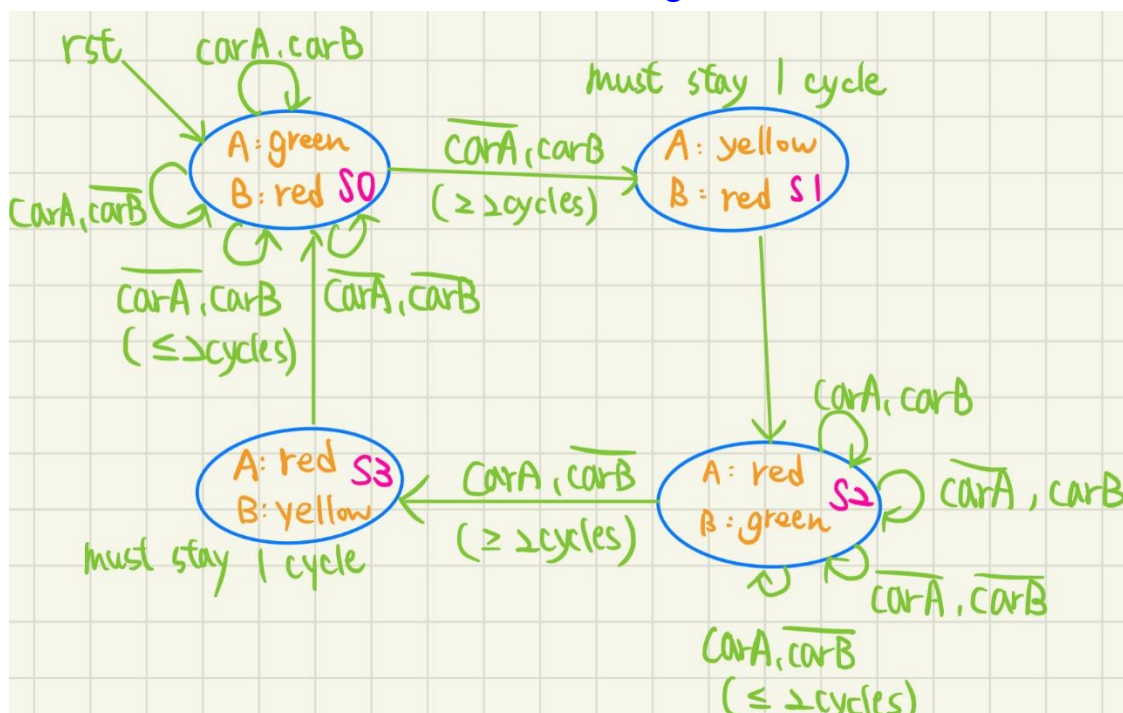 rst
carA, carB
must stay 1 cycle
A: green
B: red S0
c̅a̅r̅A̅, carB
(≥ 2cycles)
A: yellow
B: red S1
carA, c̅a̅r̅B̅
c̅a̅r̅A̅, carB
(≤ 2cycles)
c̅a̅r̅A̅, c̅a̅r̅B̅
carA, carB
A: red S3
B: yellow
must stay 1 cycle
carA, c̅a̅r̅B̅
(≥ 2cycles)
A: red
B: green S2
c̅a̅r̅A̅, carB
c̅a̅r̅A̅, c̅a̅r̅B̅
carA, c̅a̅r̅B̅
(≤ 2cycles)